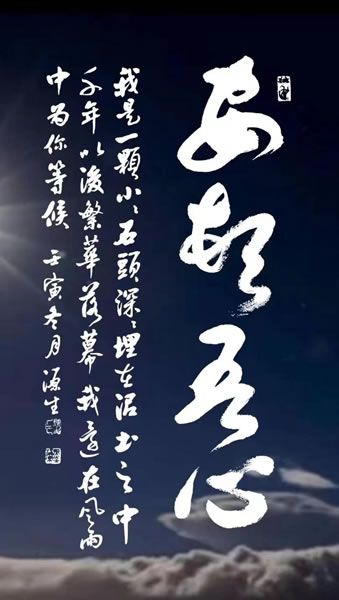 安頓吾心
我是一顆小小石頭深深埋在泥土之中
千年以後繁華落幕我還在風雨
中为你等候 壬寅冬月源生